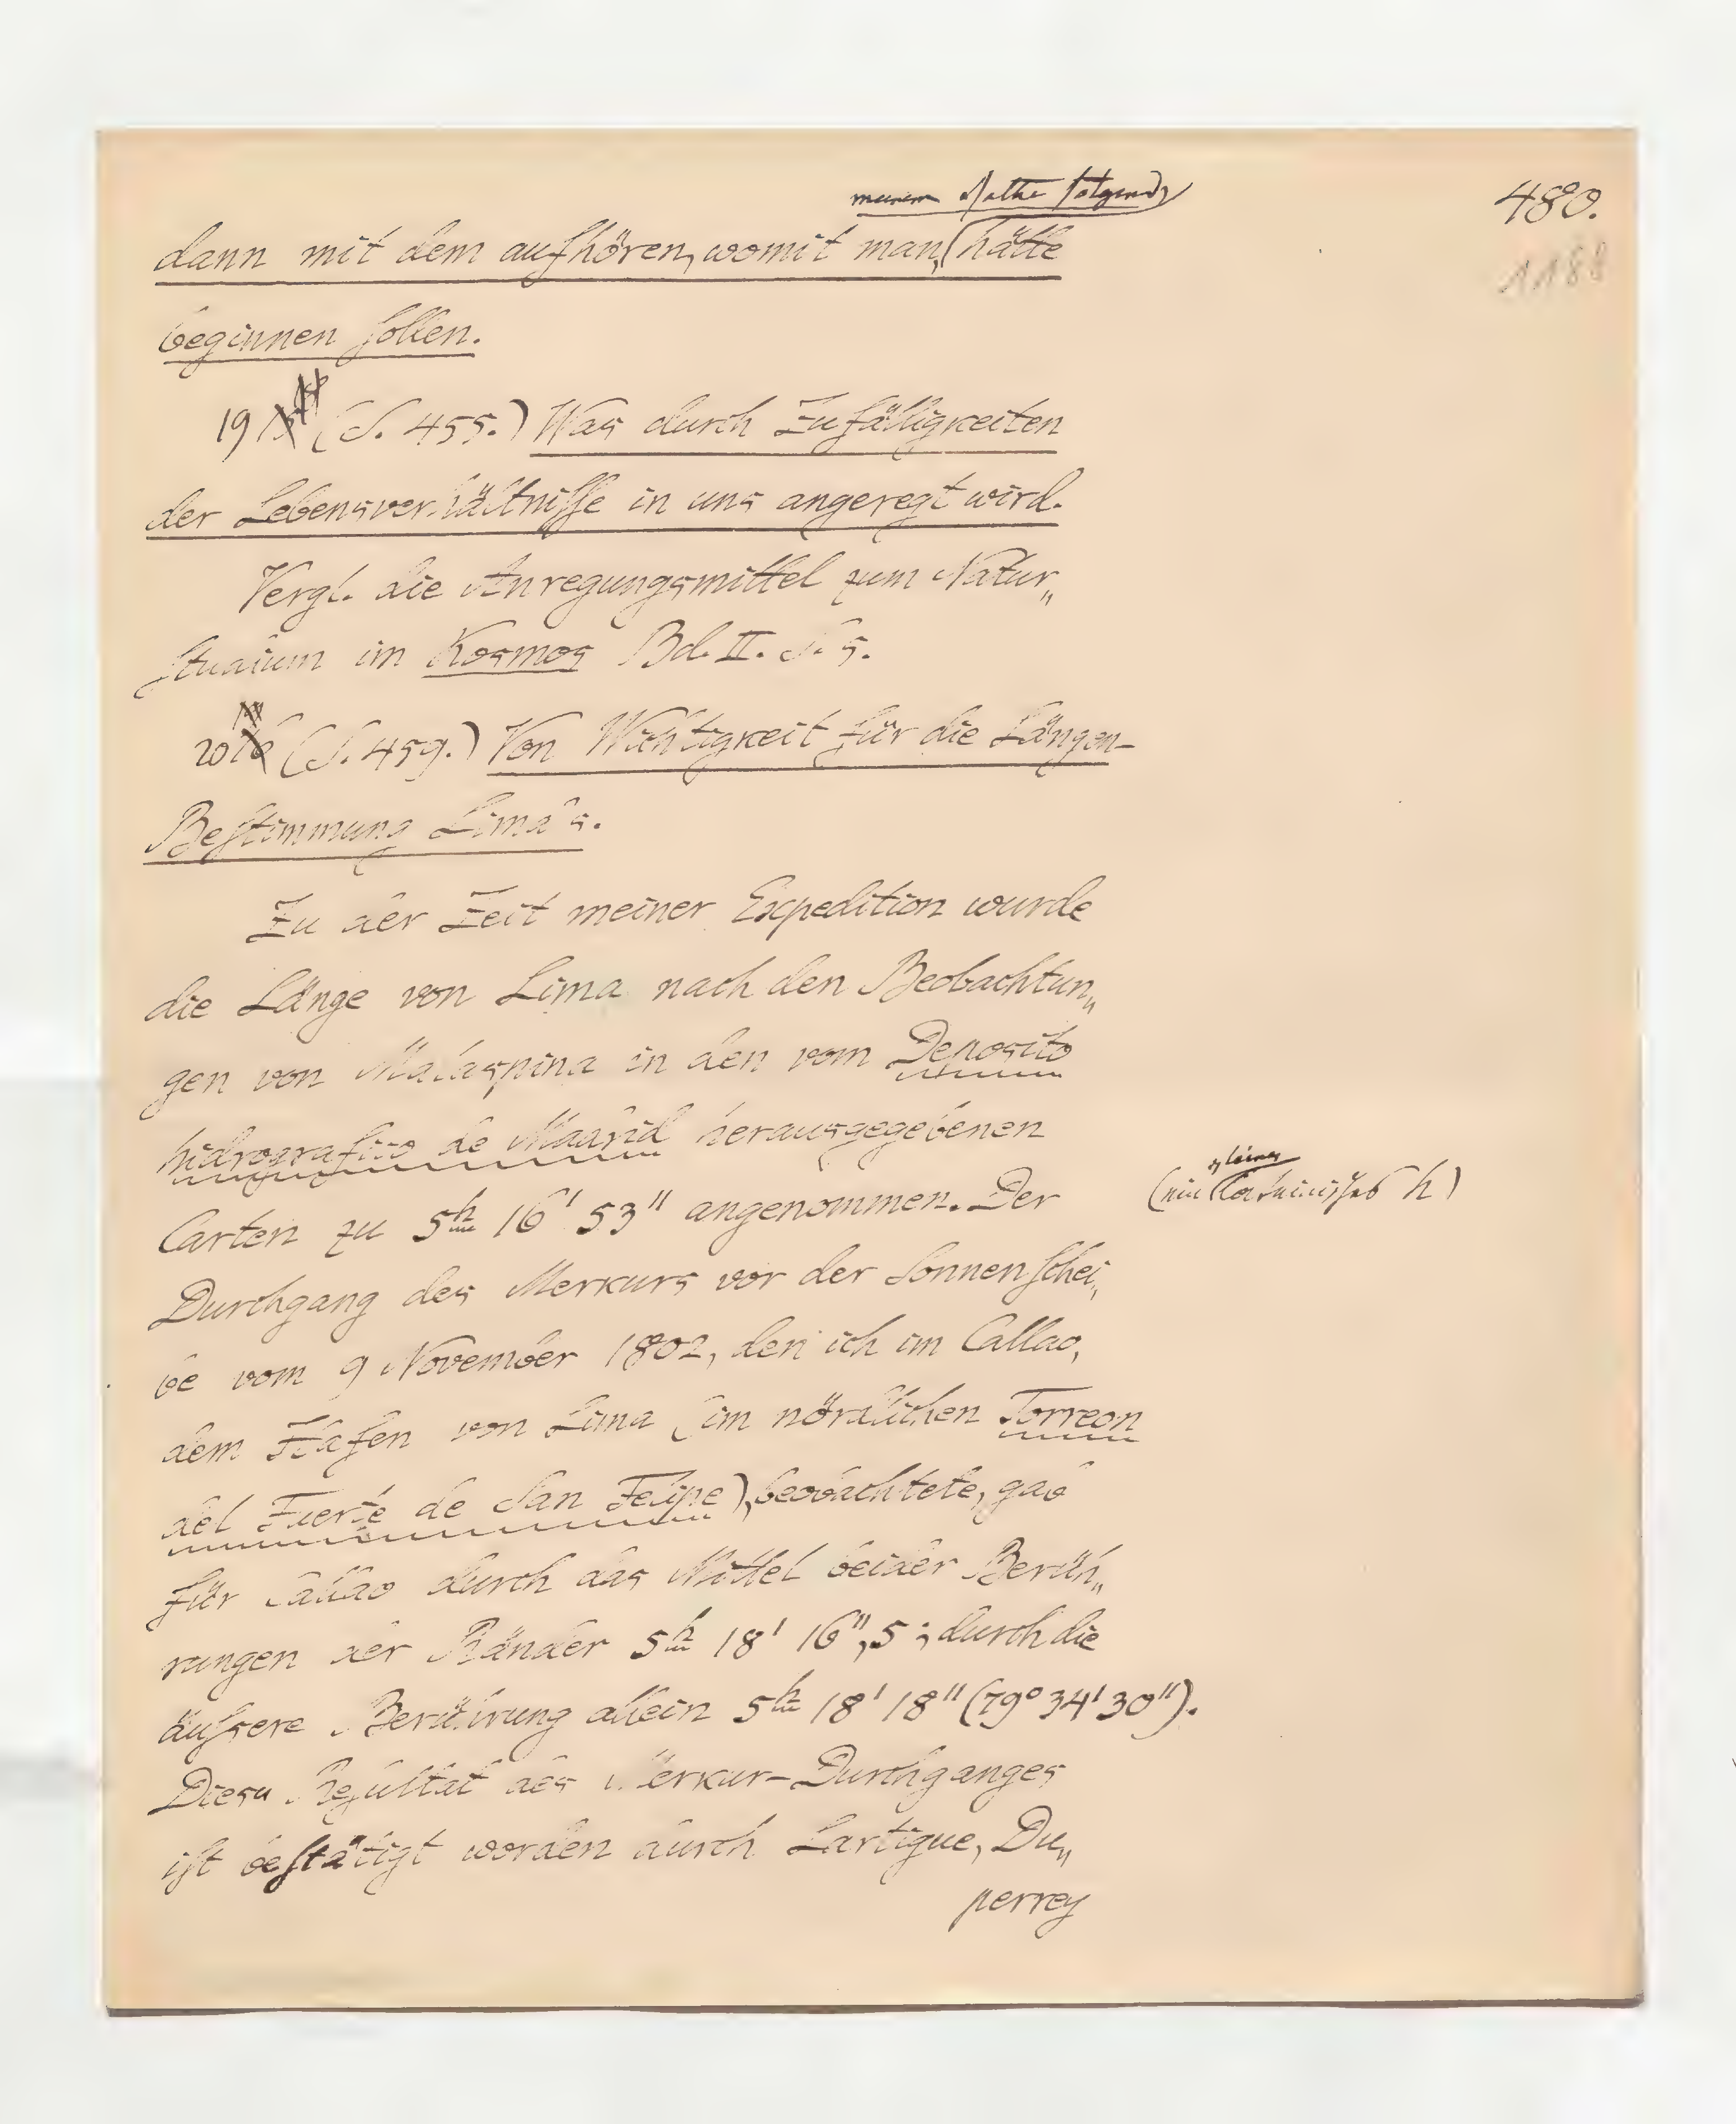 480.
1188
meinem Rathe folgend,
dann mit dem aufhören, womit man, hätte
beginnen sollen.
19 (S. 455.) Was durch Zufälligkeiten
der Lebensverhältnisse in uns angeregt wird.
Vergl. die Anregungsmittel zum Natur„
studium im Kosmos Bd. II. S. 5.
20 (S. 459.) Von Wichtigkeit für die Längen-
Bestimmung Lima's.
Zu der Zeit meiner Expedition wurde
die Länge von Lima nach den Beobachtun„
gen von Malaspina in den vom Deposito
hidrografico de Madrid herausgegebenen
Carten zu 5h 16' 53" angenommen. Der
(ein kleines h)
Durchgang des Merkurs vor der Sonnenschei„
be vom 9 November 1802, den ich im Callao,
dem Hafen von Lima (im nördlichen Torreon
del Fuerte de San Felipe), beobachtete, gab
für Callao durch das Mittel beider Berüh„
rungen der Ränder 5h 18' 16",5; durch die
äußere Berührung allein 5h 18' 18" (79° 34' 30").
Diess Resultat des Merkur-Durchganges
ist bestätigt worden durch Lartigue, Du„
perrey